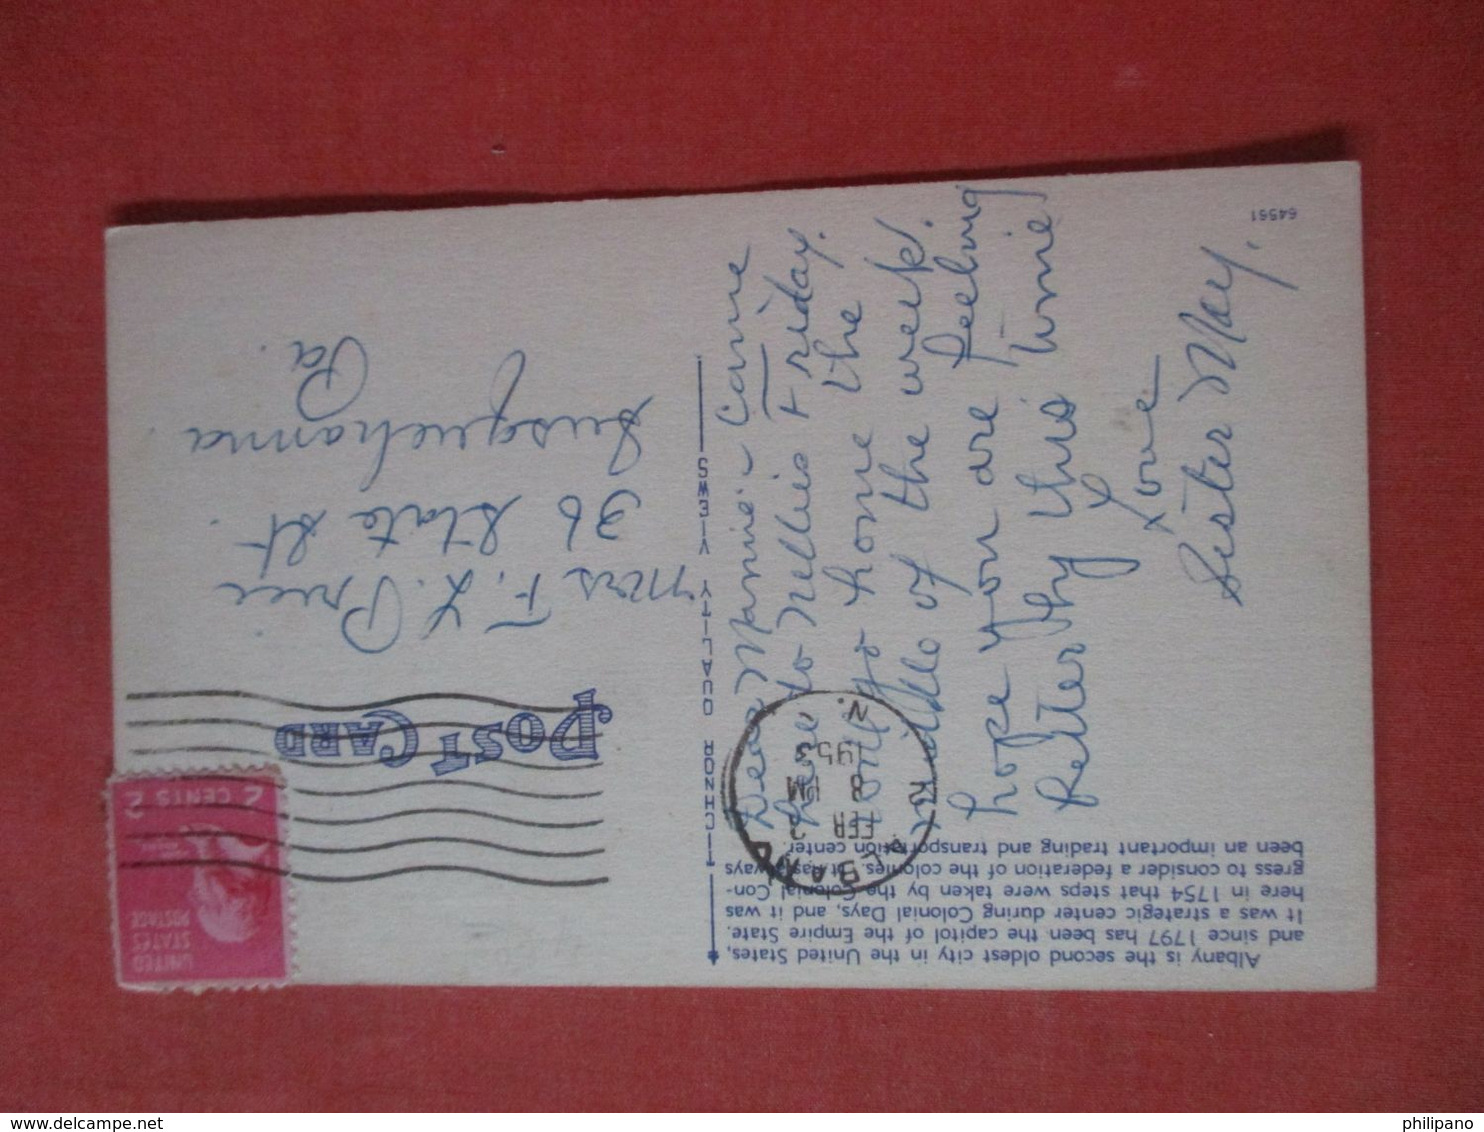 Albany is the second oldest city in the United States,
and since 1797 has been the capitol of the Empire State.
It was a strategic center during Colonial Days, and it was
here in 1754 that steps were taken by the Colonial Con-
gress to consider a federation of the colonies. It has always
been an important trading and transportation center.
Dear Mamie - Came
here to Nellies Friday.
will go home the
middle of the week.
hope you are feeling
better by this time
Love
Sister May.
64561
TICHNOR QUALITY VIEWS
POST CARD
ALBANY
FEB
8 PM
1953
N.
UNITED
STATES
POSTAGE
2 CENTS 2
Mrs F. L. Price
36 State St.
Susquehanna
Pa.
philipano